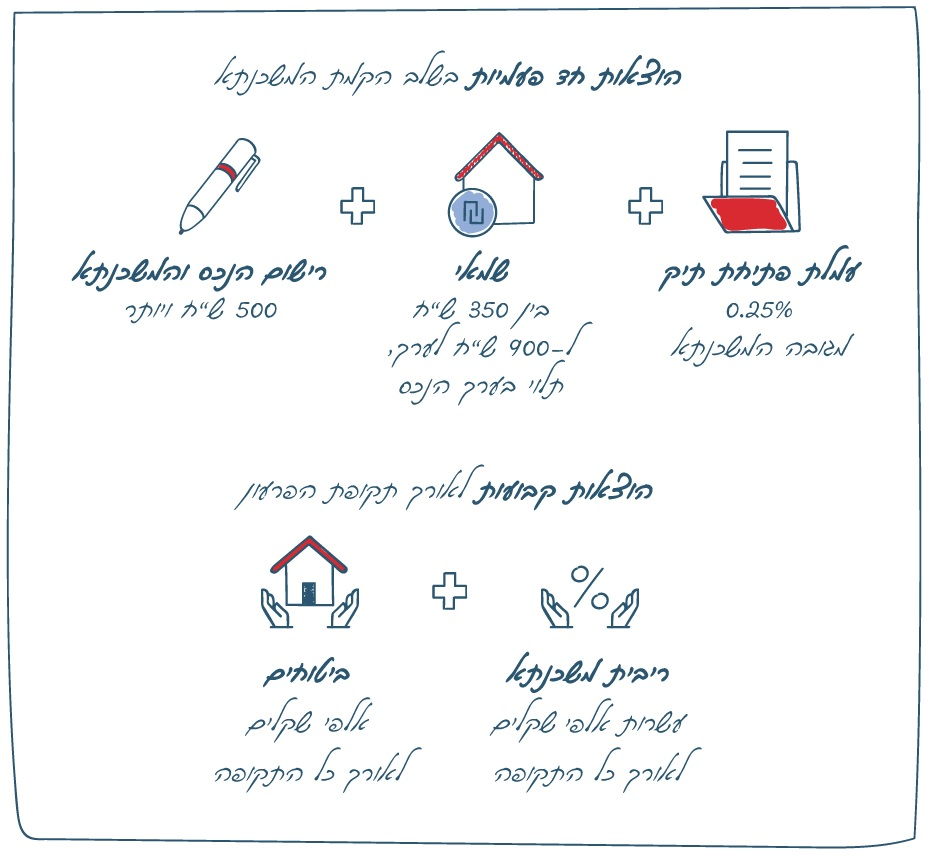 הוצאות חד פעמיות בשלב הקמת המשכנתא
עמלת פתיחת תיק
0.25%
מגובה המשכנתא
שמאי
בין 350 ש"ח
ל-900 ש"ח לערך,
תלוי בערך הנכס
רישום הנכס והמשכנתא
500 ש"ח ויותר
הוצאות קבועות לאורך תקופת הפרעון
ריבית משכנתא
עשרות אלפי שקלים
לאורך כל התקופה
ביטוחים
אלפי שקלים
לאורך כל התקופה